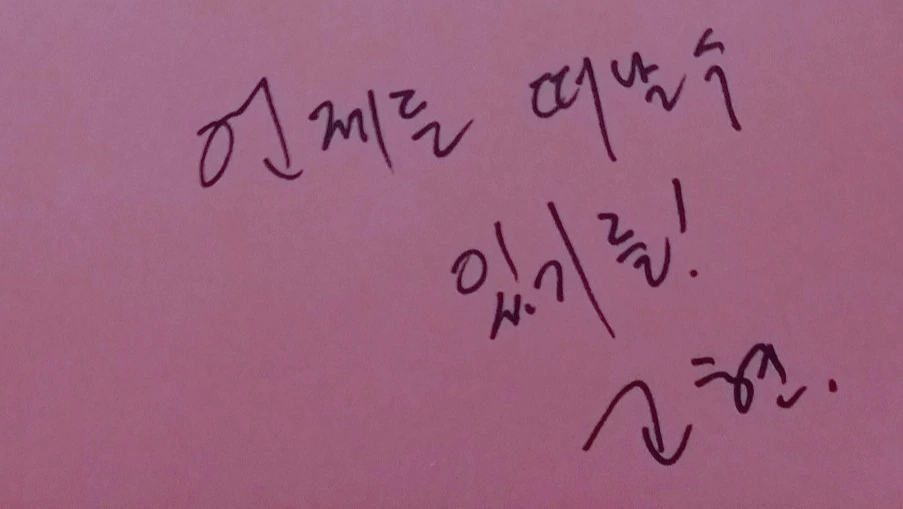 언제든 떠날 수
있기를!